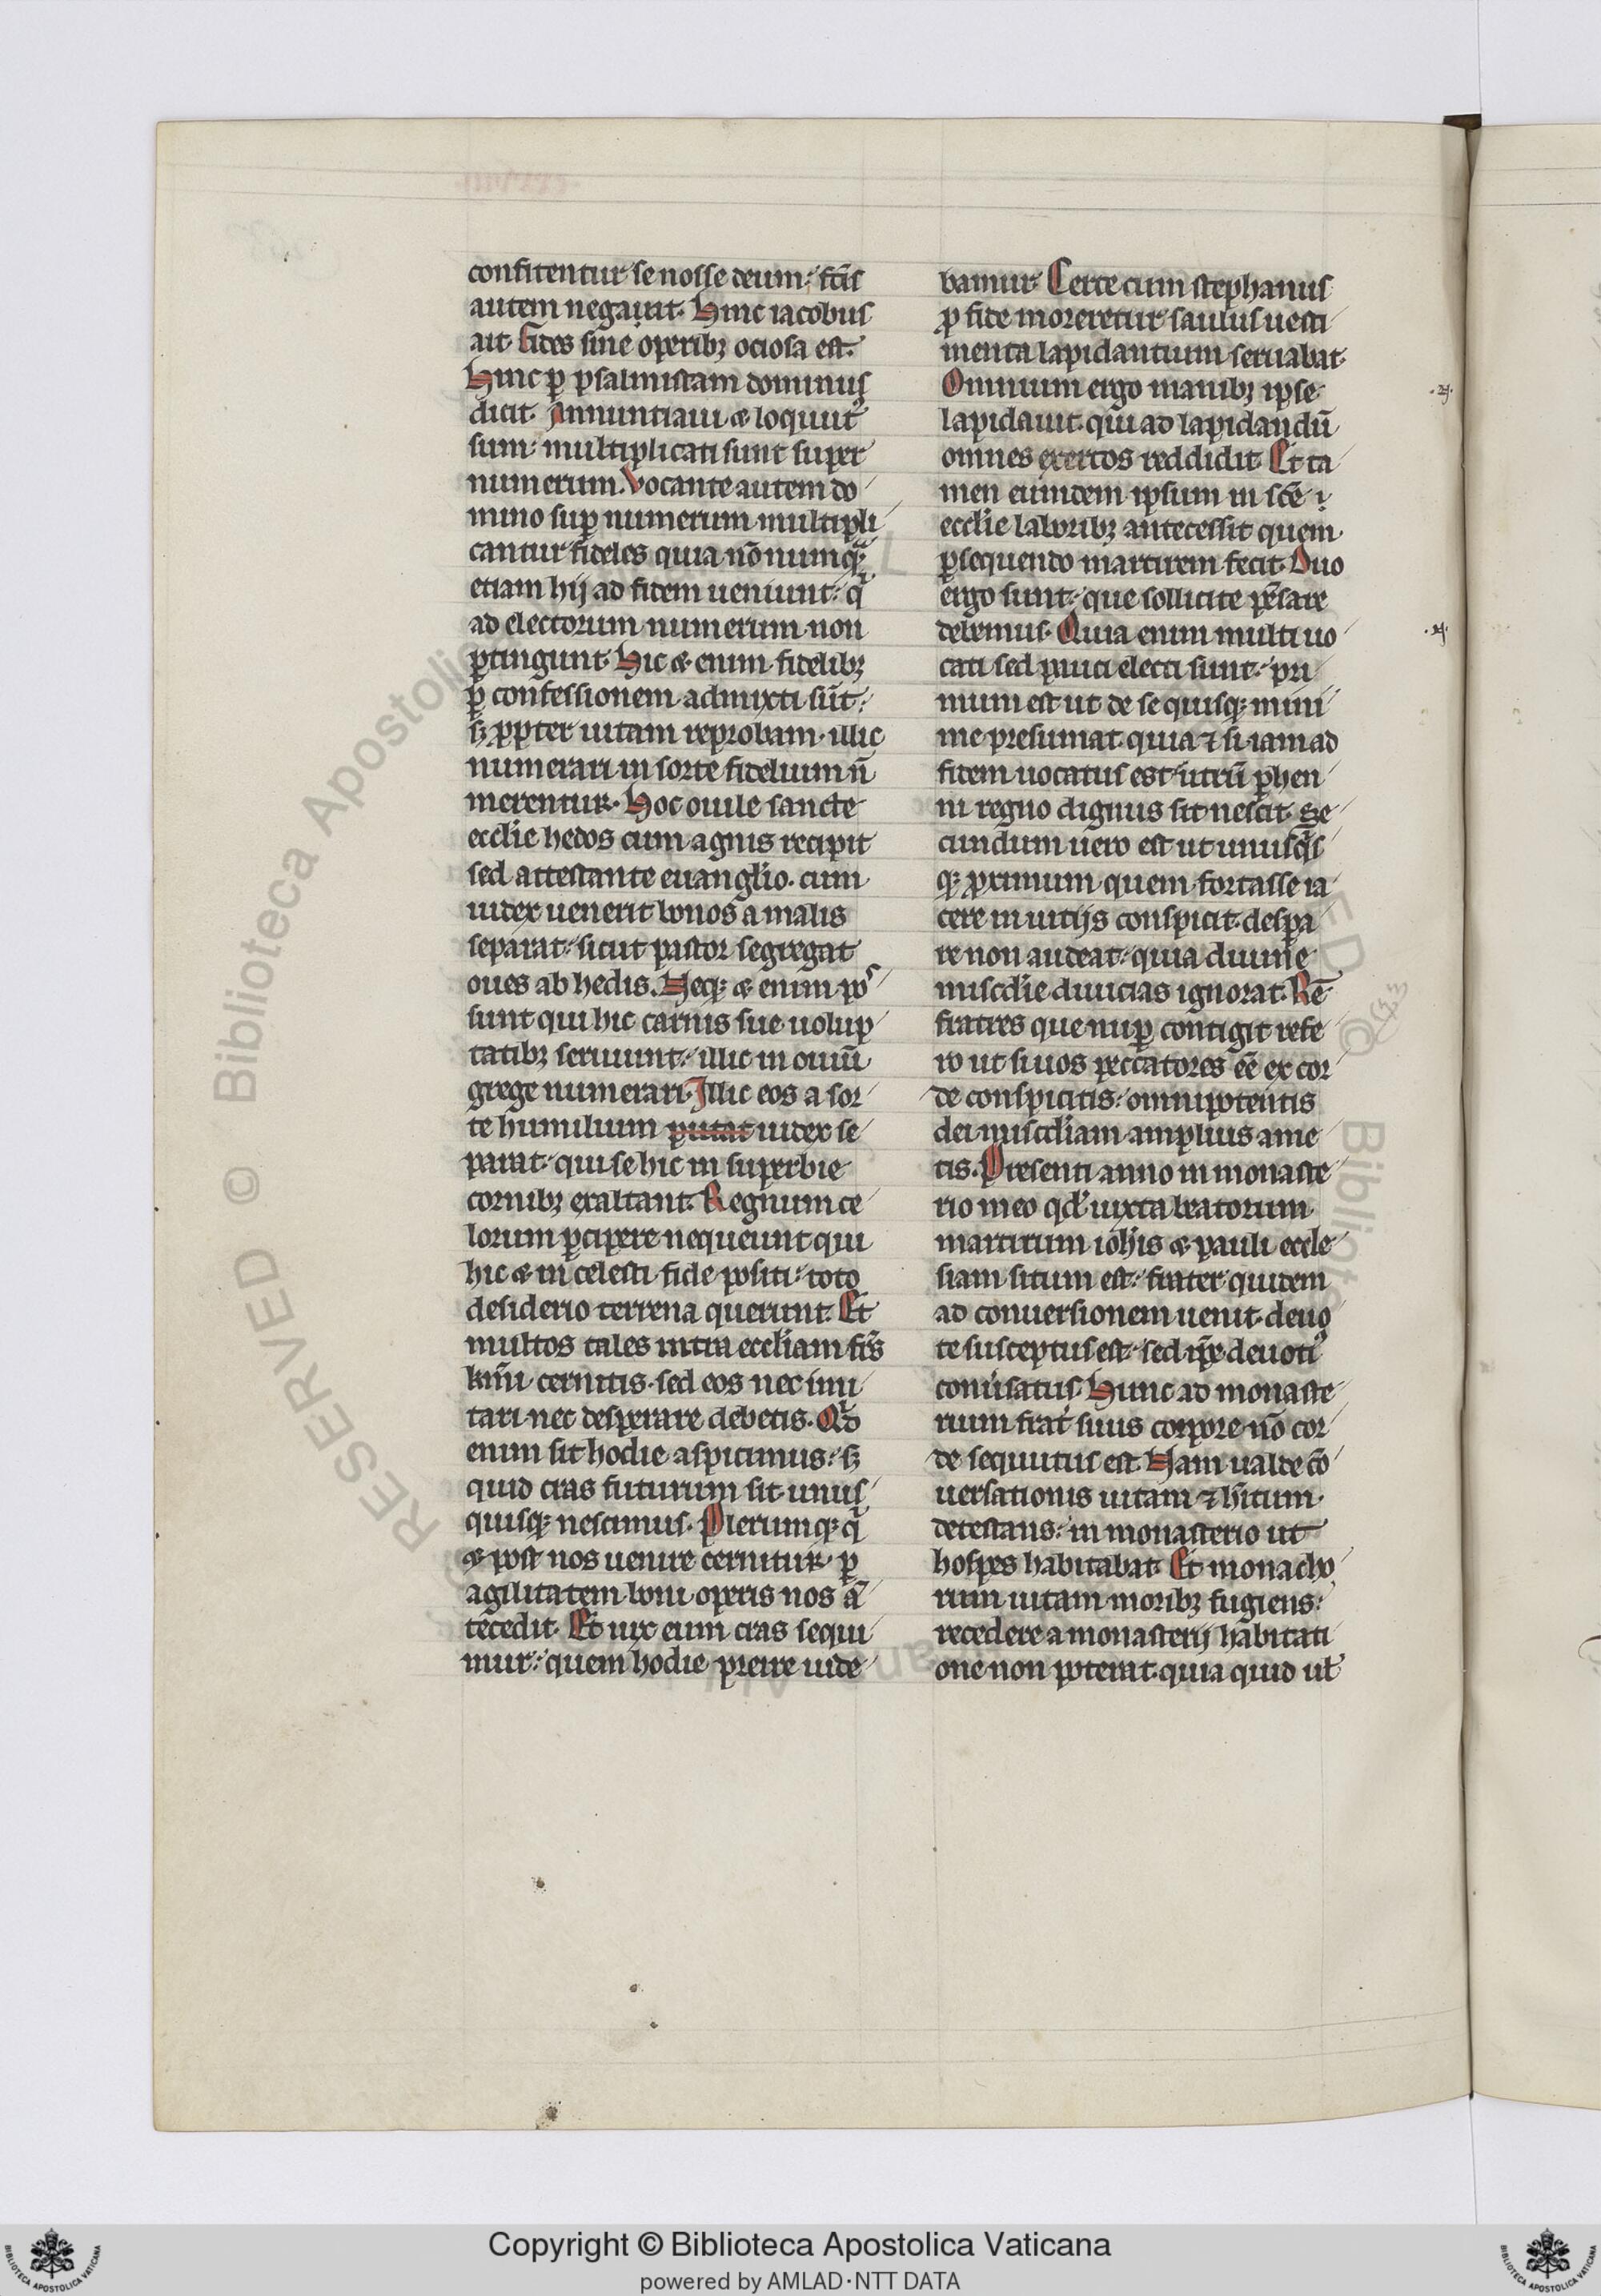 confitentur se nosse deum: fc̄is
autem negau̅t. Hinc iacobus
ait. Fides sine operibꝫ ociosa est.
Hinc ꝑ psalmistam dominus
dicit. Annuntiaui & loqu̅utꝰ
sum: multiplicati sunt super
numerum. Vocante autem do
mino suꝑ numerum multipli
cantur fideles quia nō numqᷓ
etiam hij ad fidem ueniunt: qͥ
ad electorum numerum non
ꝑtingunt. Hic & enim fidelibꝫ
ꝑ confessionem admixti su̅t:
sꝫ ꝓpter uitam reprobam illic
numerari in sorte fidelium n̄
merentur. Hoc ouile sancte
ecclie hedos cum agnis recipit
sed attestante euanglio. cum
iudex uenerit bonos a malis
separat: sicut pastor segregat
oues ab hedis. Neqꝫ & enim pos
sunt qui hic carnis sue uolup
tatibꝫ seruiunt: illic in ouiū
grege numerari. Illic eos a sor
te humilium putat iudex se
parat qui se hic in superbie
cornibꝫ exaltant. Regnum ce
lorum ꝑcipere nequeunt qui
hic & in celesti fide positi: toto
desiderio terrena querunt. Et
multos tales intra eccliam frēs
kmi̅ cernitis. sed eos nec imi
tari nec desperare debetis. Qͥd
enim sit hodie aspicimus: sꝫ
quid cras futurum sit unus
quisqꝫ nescimus. Plerumqꝫ qͥ
& post nos uenire cernitur ꝑ
agilitatem boni operis nos an̄
tecedit. Et uix eum cras sequi
mur: quem hodie preire uide
bamur. Certe cum stephanus
ꝓ fide moreretur saulus uesti
menta lapidantium seruabat.
Omnium ergo manibꝫ ipse
lapidauit. qui ad lapidandū
omnes exertos reddidit. Et ta
men eumdem ipsum in sc̄e
ecclie laboribꝫ antecessit quem
ꝑsequendo martirem fecit. Duo
ergo sunt: que sollicite pe̅sare
debemus. Quia enim multi uo
cati sed pauci electi sunt: pri
mum est ut de se quisqꝫ mini
me presumat quia ⁊ si iam ad
fidem uocatus est utrū ꝑhen
ni regno dignus sit nescit. Se
cundum uero est ut unusqͥs
qꝫ ꝓximum quem fortasse ia
cere in uitijs conspicit. despa
re non audeat: quia diuine
miscdie diuicias ignorat. Rē
fratres que nuꝑ contigit refe
ro ut si uos peccatores ee̅ ex cor
de conspicitis: omnipotentis
dei miscdiam amplius ame
tis. Presenti anno in monaste
rio meo qd̓ iuxta beatorum
martirum ioh̄is & pauli eccle
siam situm est: frater quidem
ad conuersionem uenit. deuo
te susceptus est. sed ip̄e deuotiꝰ
conu̓satus. Hunc ad monaste
rium frat̓ suus corpore nō cor
de sequutus est. Nam ualde cō
uersationis uitam ⁊ h̄itum
detestans: in monasterio ut
hospes habitabat. Et monacho
rum uitam moribꝫ fugiens:
recedere a monasterij habitati
one non poterat. quia quid ut̓
Copyright © Biblioteca Apostolica Vaticana
powered by AMLAD·NTT DATA